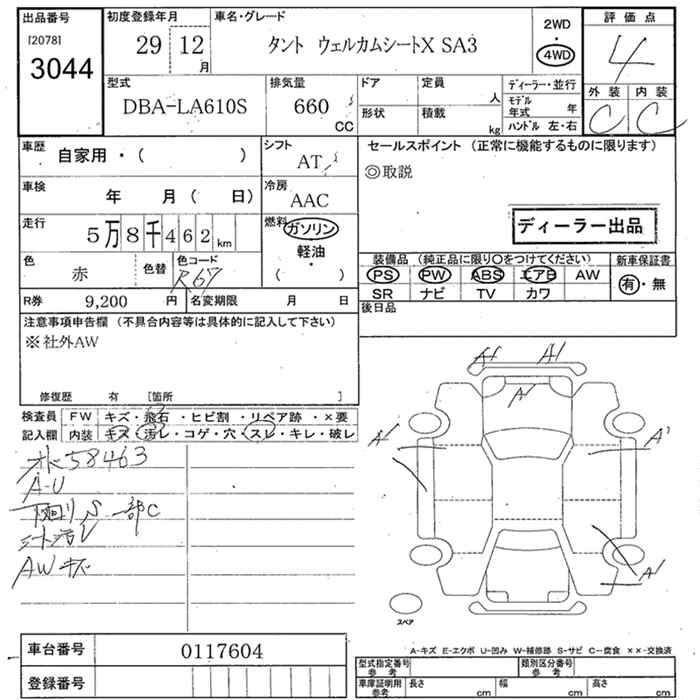 出品番号
[2078]
3044
初度登録年月
29 12
月
車名・グレード
タント ウェルカムシートX SA3
2WD
・
4WD
評価点
4
外装 内装
C C
型式
DBA-LA610S
排気量
660
CC
ドア
形状
定員
人
積載
kg
ディーラー・並行
モデル
年式 年
ハンドル 左・右
車歴
自家用・( )
シフト
AT
車検
年 月 ( 日)
冷房
AAC
走行
5万8千462km
燃料
ガソリン
軽油
・
( )
色
赤
色替
色コード
R67
R券
9,200 円
名変期限 月 日
セールスポイント (正常に機能するものに限ります)
◎取説
ディーラー出品
装備品 (純正品に限り〇をつけてください)
PS PW ABS エアB AW
SR ナビ TV カワ
新車保証書
有・無
後日品
注意事項申告欄 (不具合内容等は具体的に記入して下さい)
※社外AW
修復歴 有 [箇所 ]
検査員
記入欄
FW キズ・飛石・ヒビ割・リペア跡・×要
内装 キズ・汚レ・コゲ・穴・スレ・キレ・破レ
58463
A-U
下回りS 一部C
AWキズ
A1 A1
A1
A1 A1
A1
スペア
A-キズ E-エクボ U-凹み W-補修跡 S-サビ C-腐食 ××-交換済
車台番号
0117604
登録番号
型式指定番号
参考
類別区分番号
参考
車庫証明用
参考
長さ cm
幅 cm
高さ cm